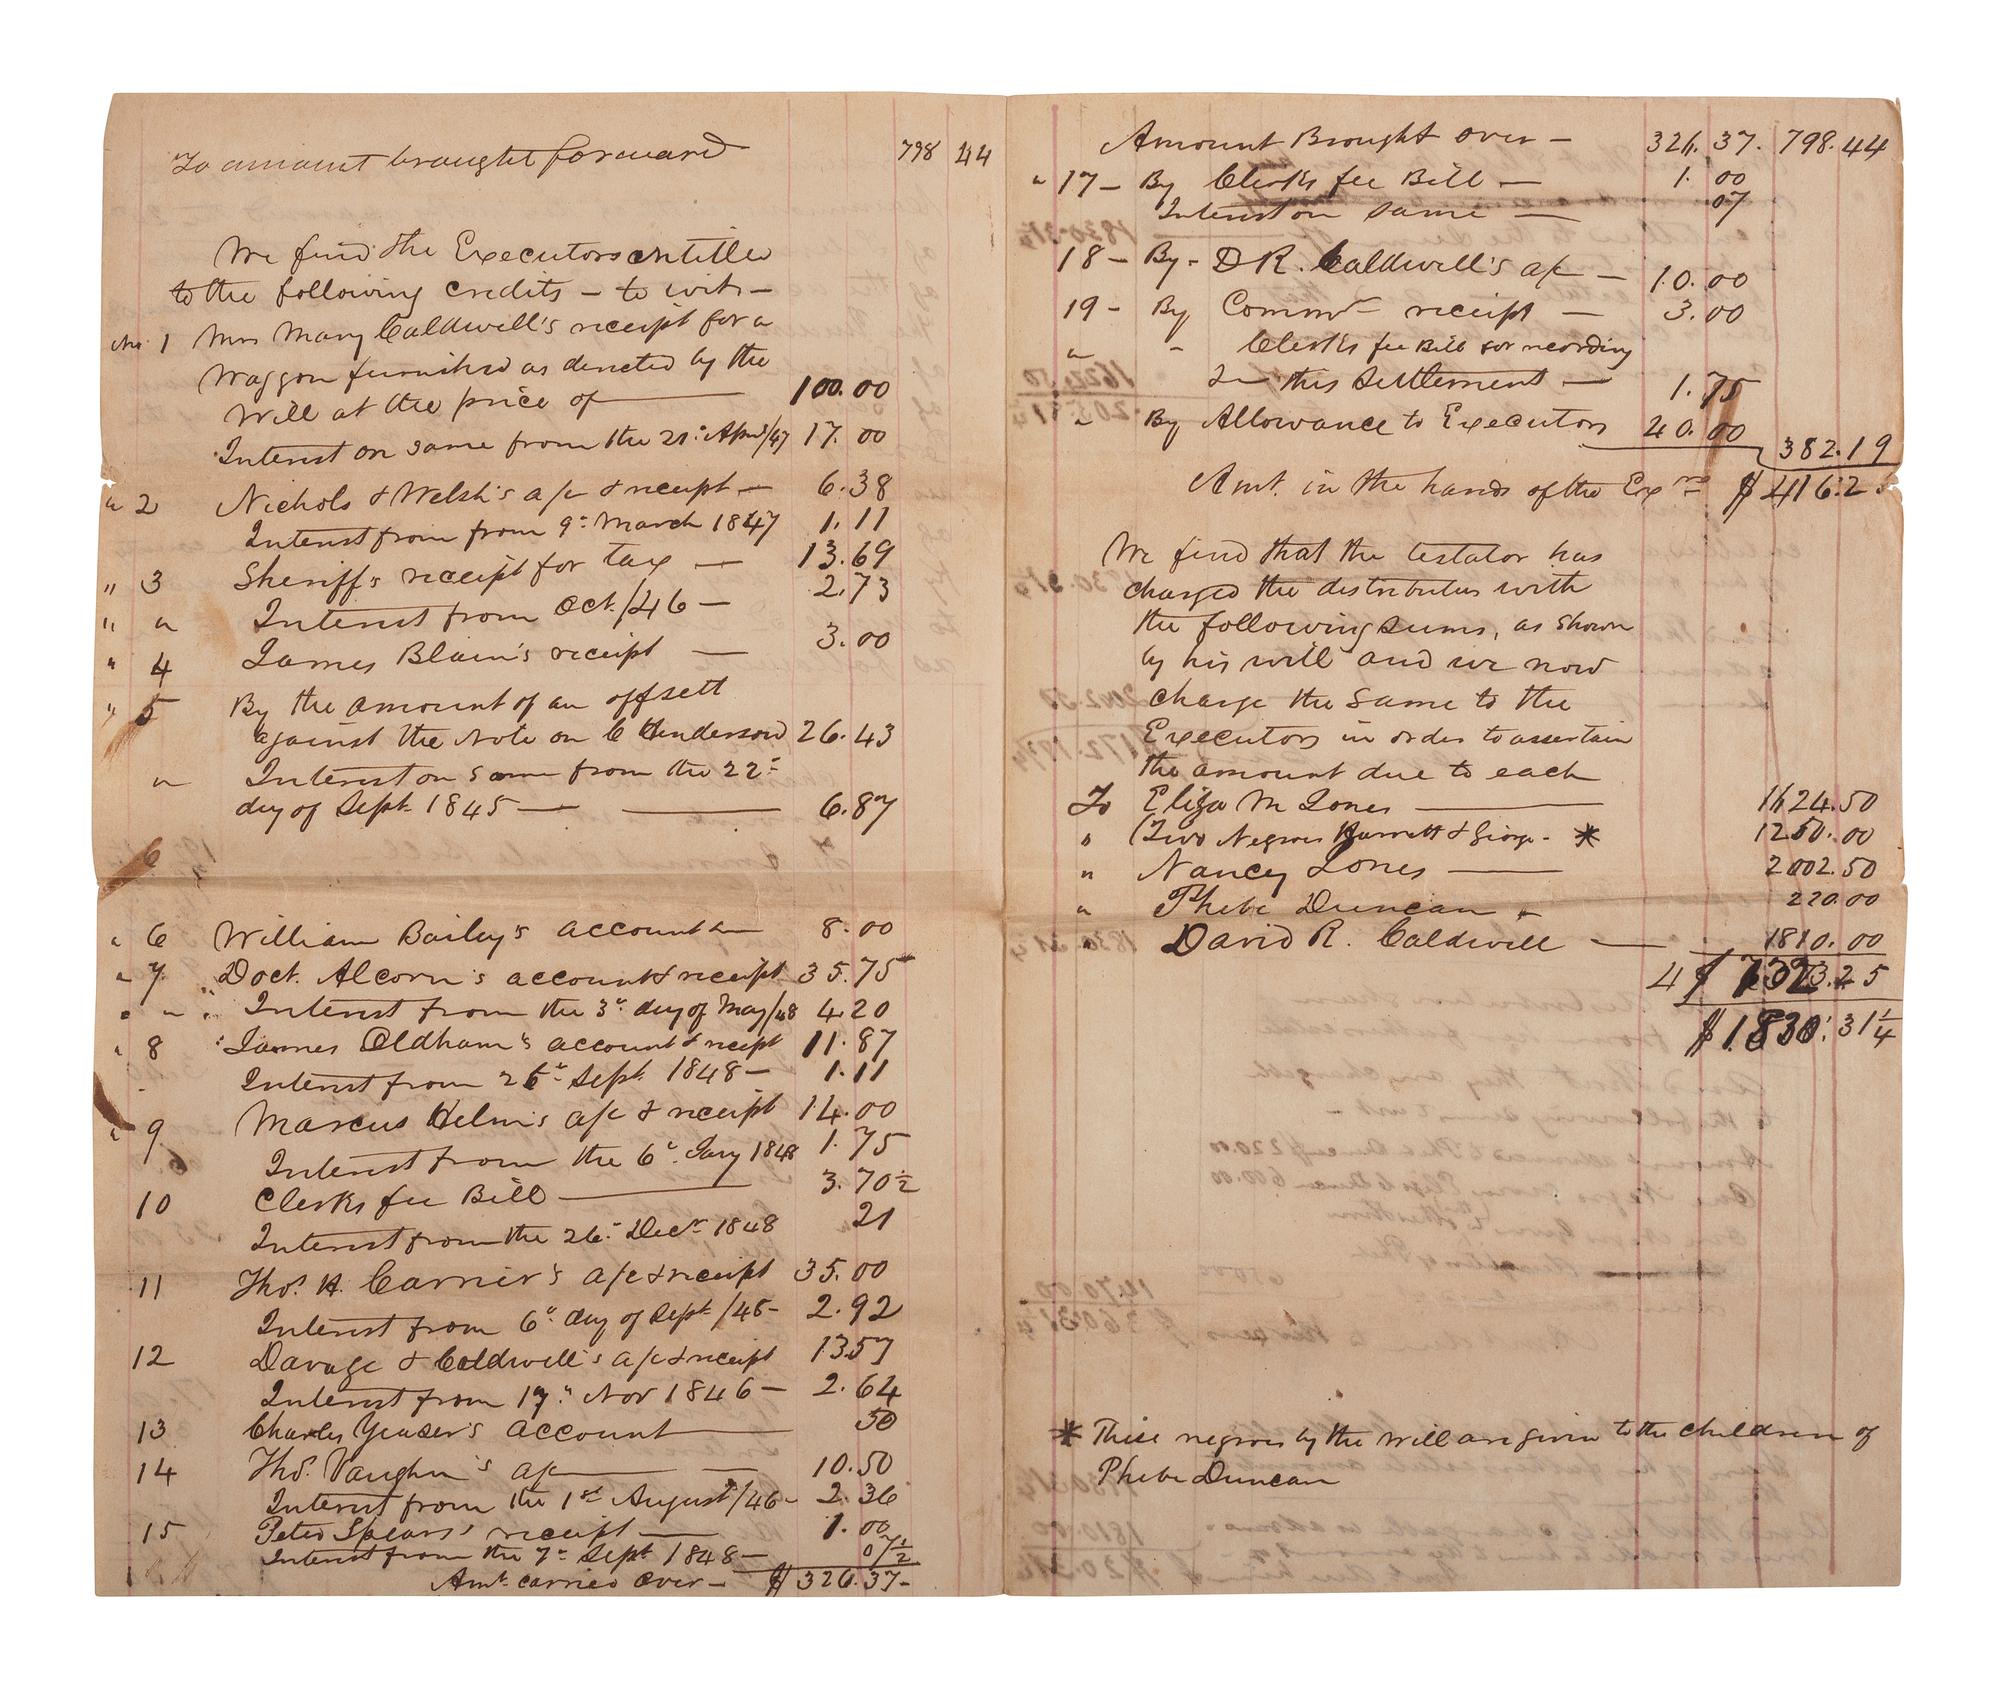 To amount brought forward 798 44
We find the Executors entitled
to the following credits – to wit –
No 1 Mrs Mary Caldwell's receipt for a
Waggon furnished as directed by the
Will at the price of — 100.00
Interest on same from the 21st Apr/47 17.00
" 2 Nichols & Welsh's a/c & receipt — 6.38
Interest from from 9th March 1847 1.11
" 3 Sheriff's receipt for tax — 13.69
" " Interest from Oct. /46 — 2.73
" 4 James Blain's receipt — 3.00
" 5 By the amount of an offsett
against the Note on C Henderson 26.43
" Interest on same from the 22d
day of Sept. 1845 — — 6.87
6
" 6 William Bailey's account — 8.00
" 7 Doct. Alcorn's account & receipt 35.75
" " Interest from the 3d day of May/48 4.20
" 8 James Oldham's account & receipt 11.87
Interest from 26th Sept. 1848 — 1.11
" 9 Marcus Helm's a/c & receipt 14.00
Interest from the 6th Jany 1848 1.75
10 Clerks fee Bill — 3.70½
Interest from the 26th Decr 1848 21
11 Thos. H. Carrier's a/c & receipt 35.00
Interest from 6th day of Sept /48 – 2.92
12 Davage & Caldwell's a/c & receipt 13.57
Interest from 17th Nov 1846 – 2.64
13 Charles Yeaser's account — 50
14 Thos. Vaughn's a/c — — 10.50
Interest from the 1st August /46 – 2.36
15 Peter Spears' receipt — 1.00
Interest from the 7th Sept 1848 — 07½
Amt. carried over – $326.37-
Amount Brought over – 326.37. 798.44
" 17 – By Clerks fee Bill — 1.00
Interest on same — 07
18 – By – D R. Caldwell's a/c — 10.00
19 – By Commr receipt — 3.00
" " Clerks fee Bill for recording
this Settlement — 1.75
" By Allowance to Executors 40.00 382.19
Amt. in the hands of the Exrs $416.25
We find that the testator has
charged the distributees with
the following sums, as shown
by his will and we now
charge the same to the
Executors in order to ascertain
the amount due to each
To Eliza M Jones — 1624.50
" (Two Negroes Harriett & George – * 1250.00
" Nancy Jones — 2002.50
" Phebe Duncan – 220.00
" David R. Caldwell — 1810.00
4 $ 7323.25
$1830.31¼
* These negroes by the will are given to the children of
Phebe Duncan